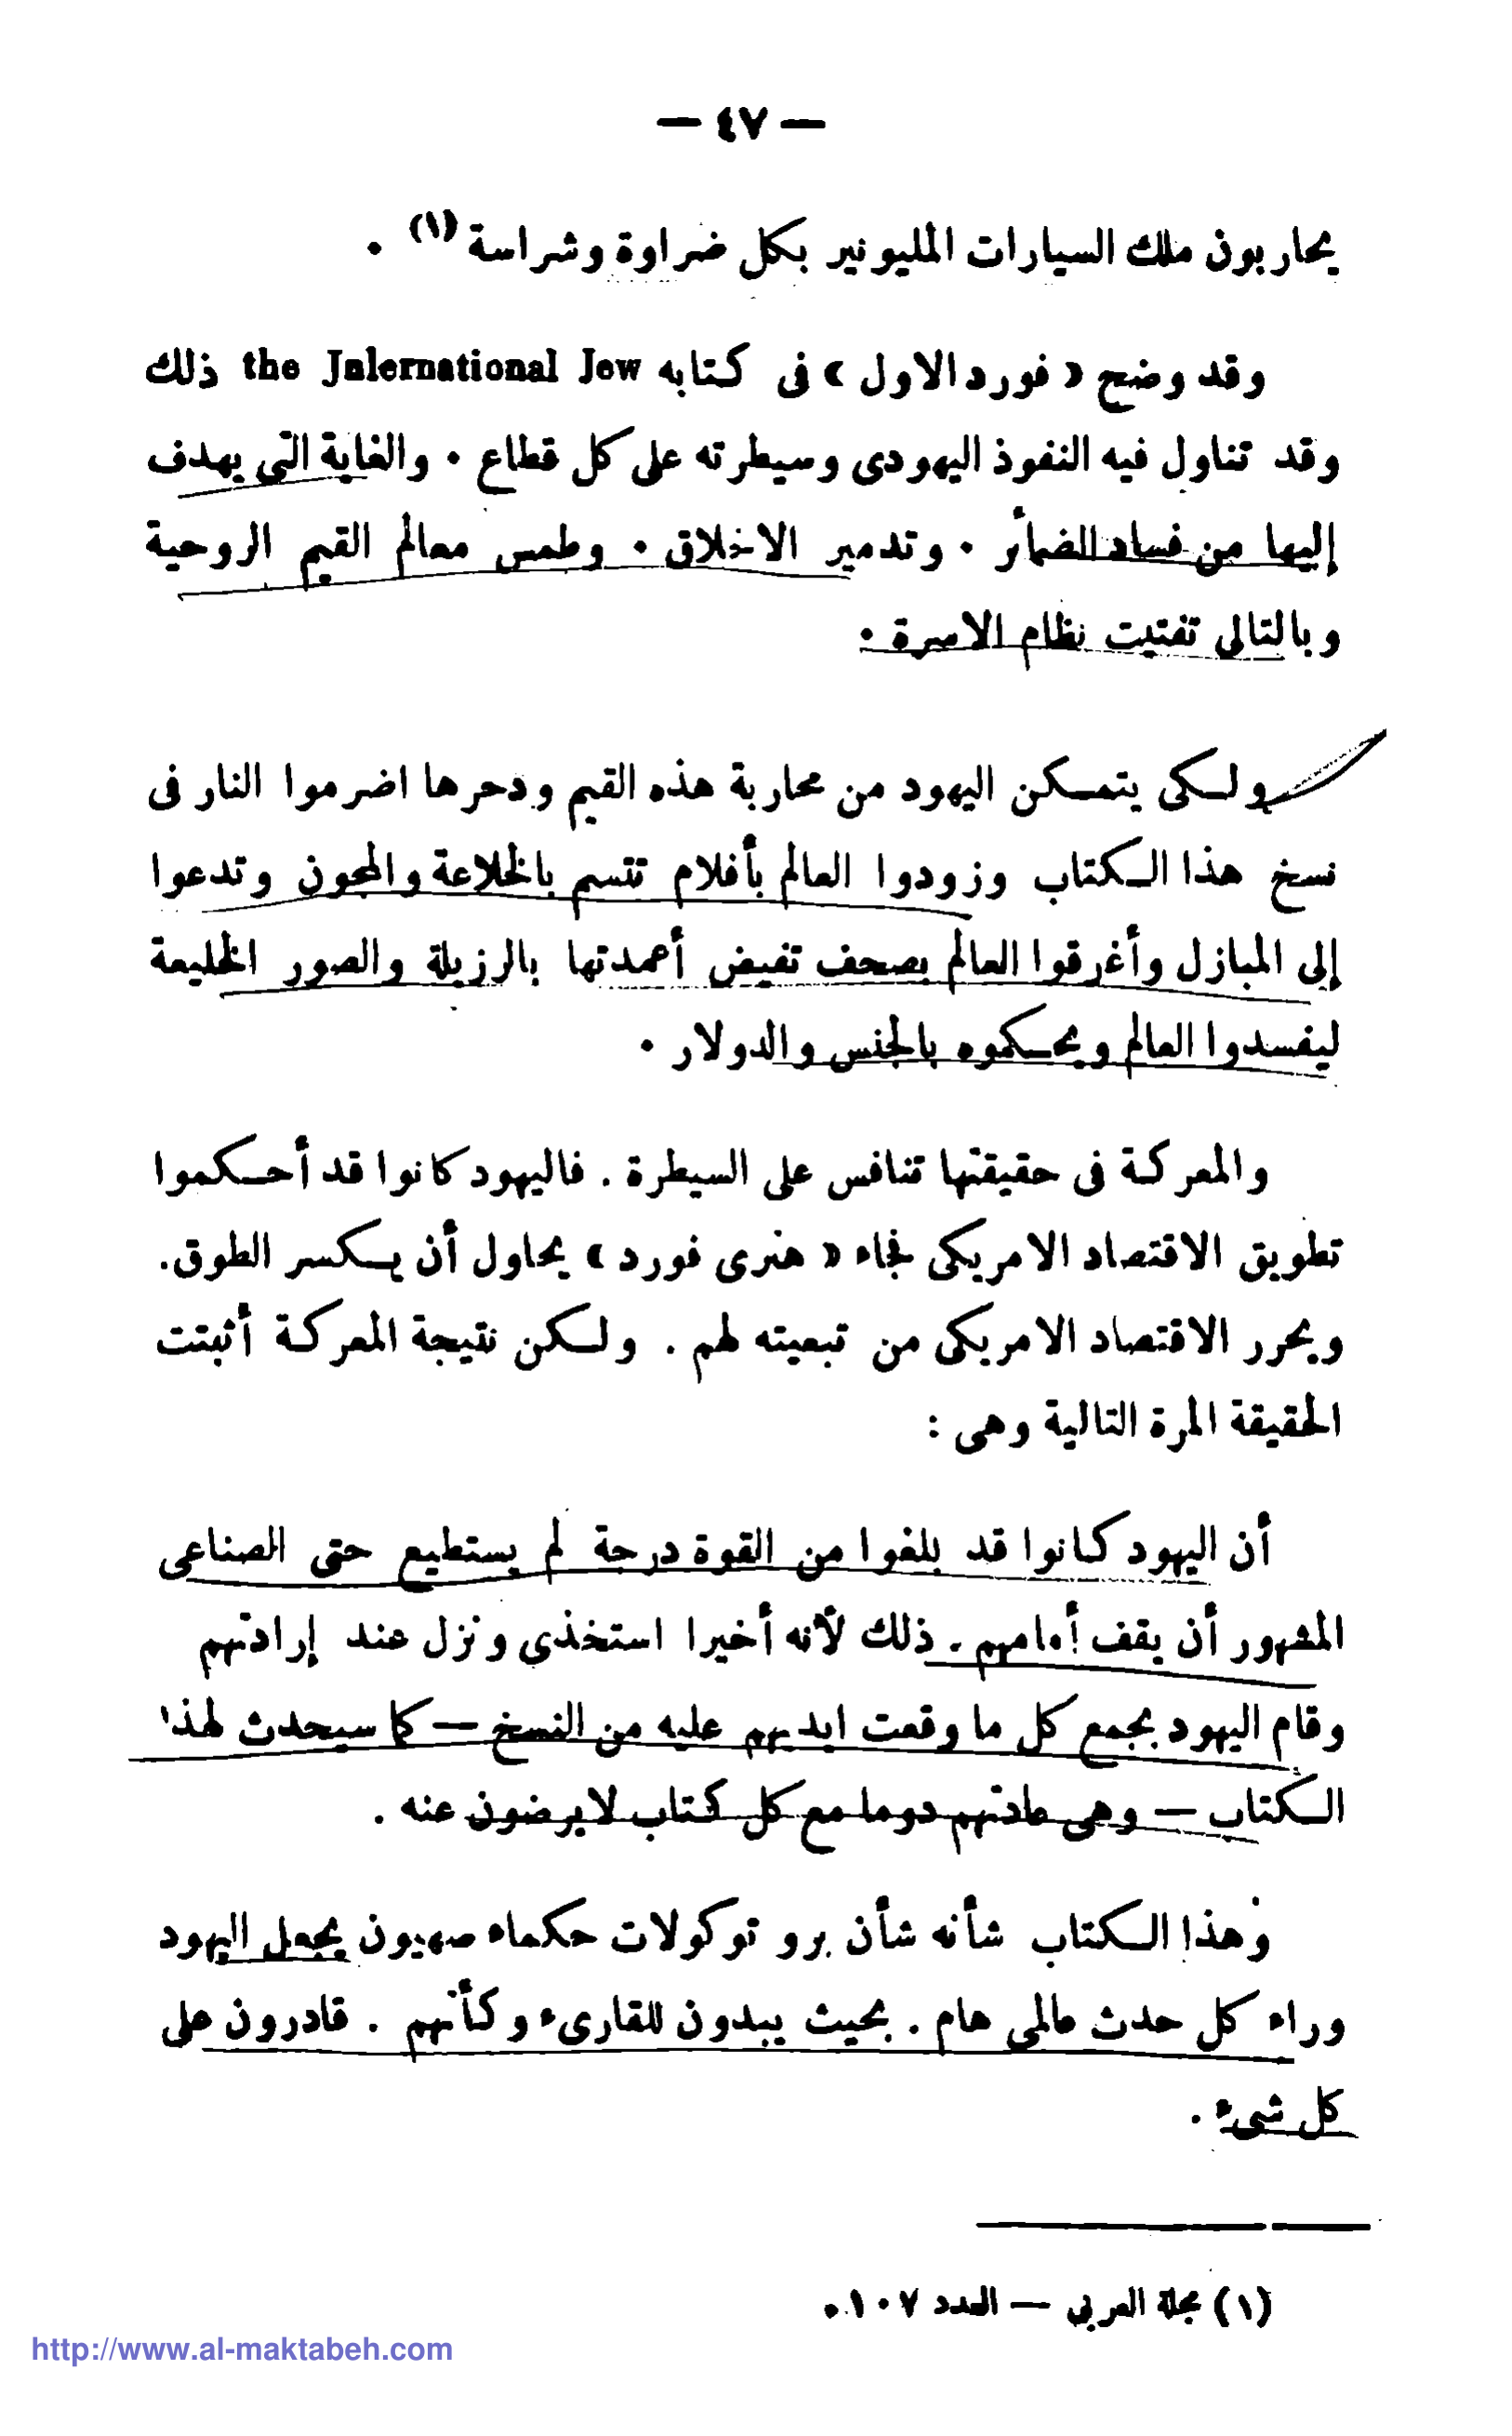 — ٤٧ —
يحاربون ملك السيارات المليونير بكل ضراوة وشراسة (١) .
وقد وضح « فورد الاول » فى كتابه the Jnlernational Jew ذلك
وقد تناول فيه النفوذ اليهودى وسيطرته على كل قطاع . والغاية التى يهدف
إليها من فساد الضمائر . وتدمير الاخلاق . وطمس معالم القيم الروحية
وبالتالى تفتيت نظام الاسرة .
ولكى يتمكن اليهود من محاربة هذه القيم ودحرها اضرموا النار فى
نسخ هذا الكتاب وزودوا العالم بأفلام تتسم بالخلاعة والمجون وتدعوا
إلى المبازل وأغرقوا العالم بصحف تفيض أعمدتها بالرزيلة والصور الخليعة
ليفسدوا العالم ويحكموه بالجنس والدولار .
والمعركة فى حقيقتها تنافس على السيطرة . فاليهود كانوا قد أحكموا
تطويق الاقتصاد الامريكى فجاء « هنرى فورد » يحاول أن يكسر الطوق .
ويحرر الاقتصاد الامريكى من تبعيته لهم . ولكن نتيجة المعركة أثبتت
الحقيقة المرة التالية وهى :
أن اليهود كانوا قد بلغوا من القوة درجة لم يستطيع حتى الصناعى
المشهور أن يقف أمامهم . ذلك لأنه أخيرا استخذى ونزل عند إرادتهم
وقام اليهود بجمع كل ما وقعت ايديهم عليه من النسخ — كما سيحدث لهذا
الكتاب — وهى عادتهم دوما مع كل كتاب لا يرضون عنه .
وهذا الكتاب شأنه شأن بروتوكولات حكماء صهيون يجعل اليهود
وراء كل حدث عالمى هام . بحيث يبدون للقارىء وكأنهم . قادرون على
كل شىء .
(١) مجلة العربي — العدد ١٠٧ .
http://www.al-maktabeh.com